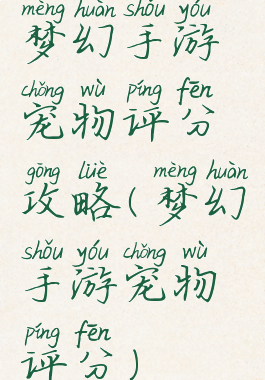 mèng huàn shǒu yóu
梦幻手游
chǒng wù píng fēn
宠物评分
gōng lüè mèng huàn
攻略(梦幻
shǒu yóu chǒng wù
手游宠物
píng fēn
评分)